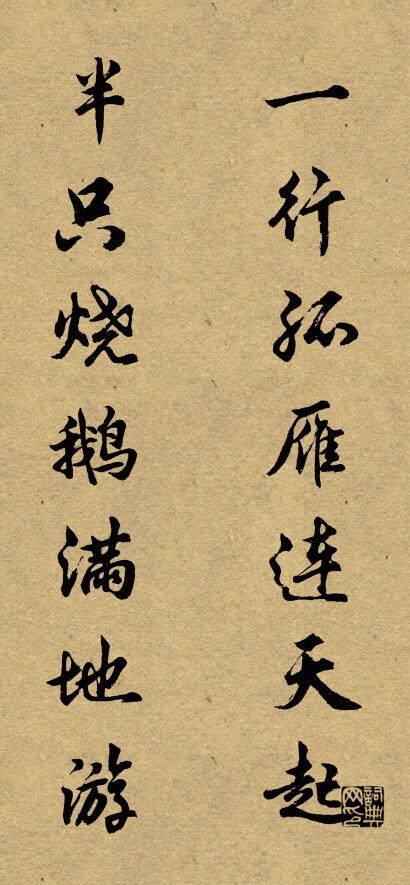 一行孤雁连天起
半只烧鹅满地游